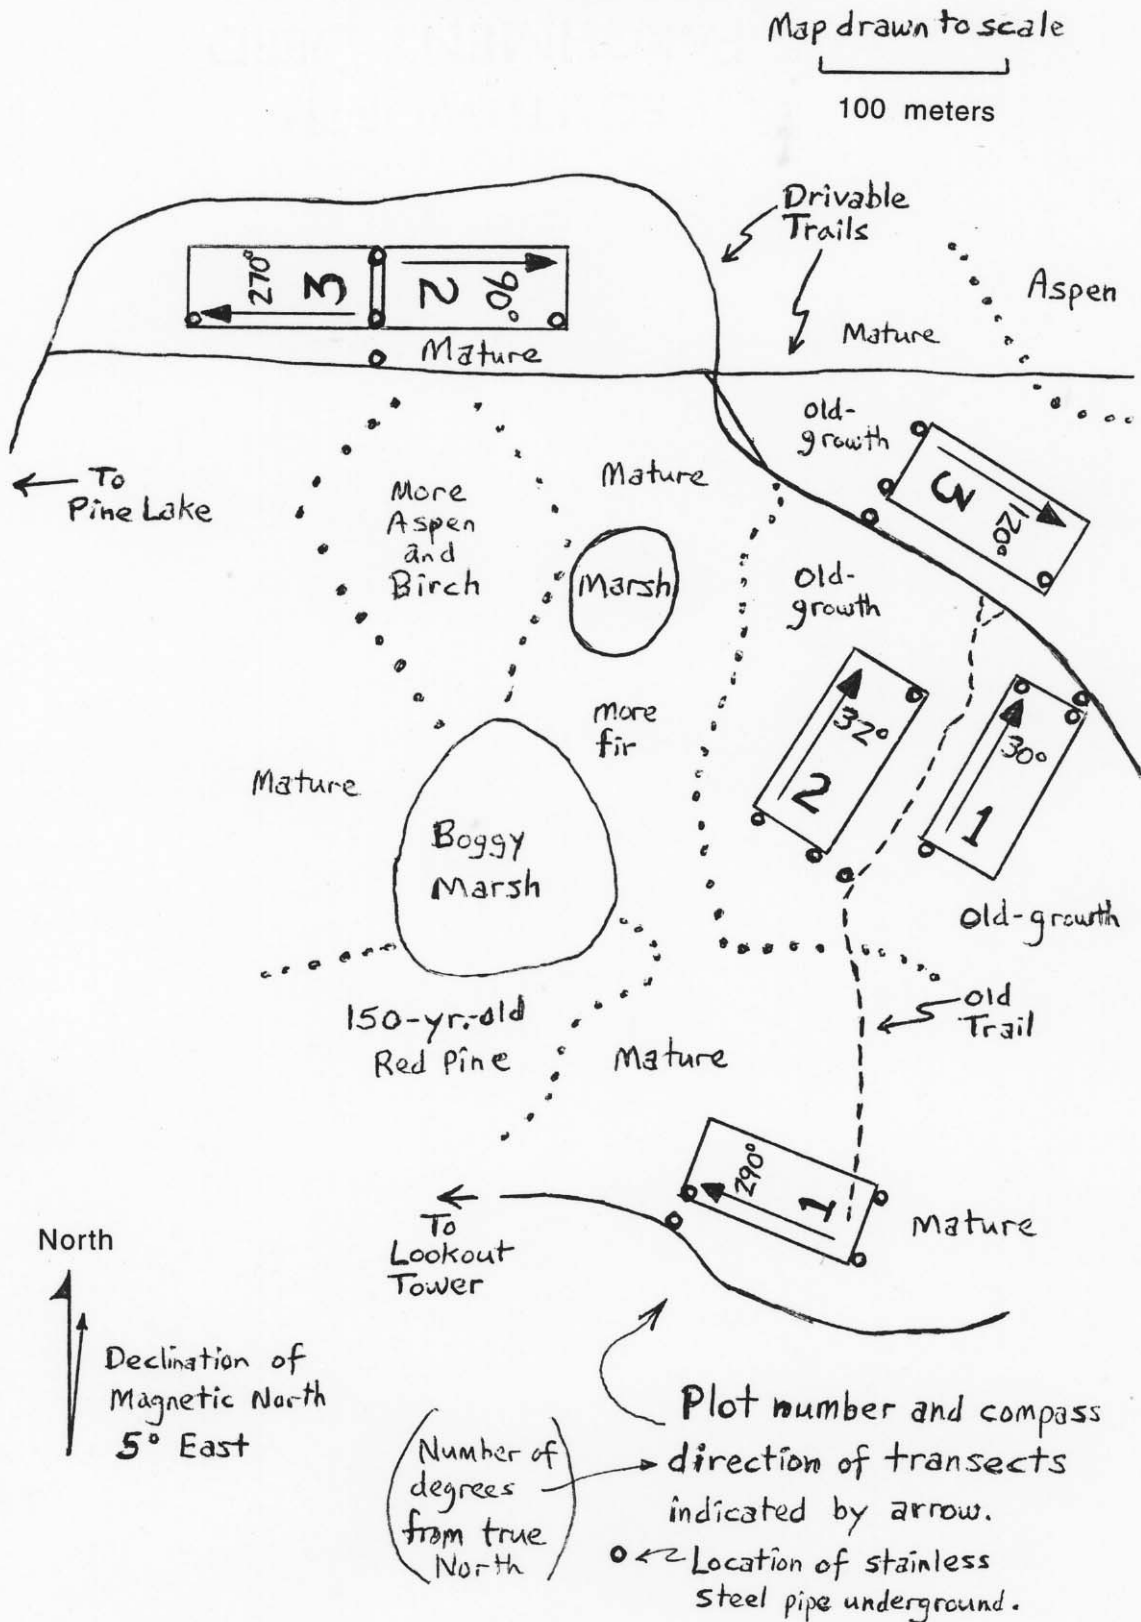 Map drawn to scale
100 meters
Drivable
Trails
Aspen
Mature
270°
3
2
90°
Mature
Old-
growth
3
120°
To
Pine Lake
More
Aspen
and
Birch
Mature
Marsh
Old-
growth
32°
2
30°
1
more
fir
Mature
Boggy
Marsh
Old-growth
150-yr.-old
Red Pine
Mature
Old
Trail
290°
1
Mature
To
Lookout
Tower
North
Declination of
Magnetic North
5° East
Plot number and compass
direction of transects
indicated by arrow.
(Number of
degrees
from true
North)
Location of stainless
steel pipe underground.